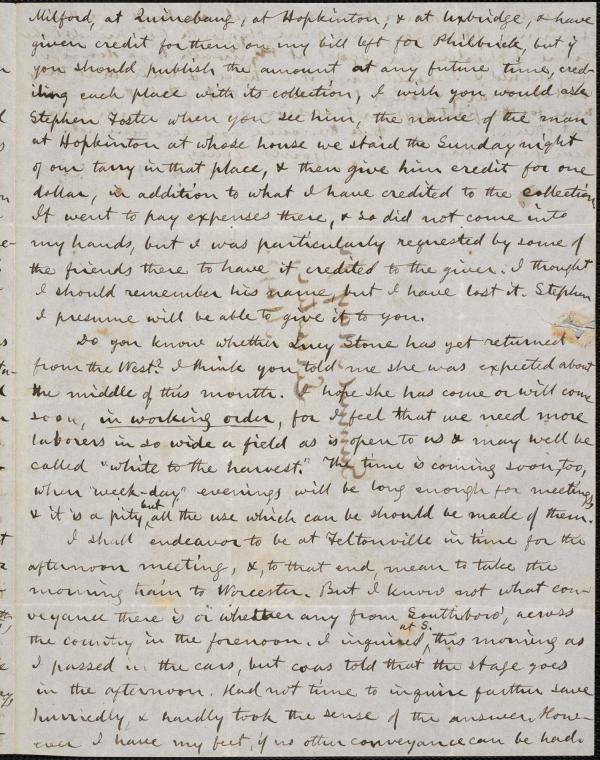 Milford, at Quinebaug, at Hopkinton, & at Uxbridge, & have
given credit for them on my bill left for Philbrick, but if
you should publish the amount at any future time, cred-
iting each place with its collection, I wish you would ask
Stephen Foster when you see him, the name of the man
at Hopkinton at whose house we staid the Sunday night
of our tarry in that place, & then give him credit for one
dollar, in addition to what I have credited to the collection.
It went to pay expenses there, & so did not come into
my hands, but I was particularly requested by some of
the friends there to have it credited to the giver. I thought
I should remember his name, but I have lost it. Stephen
I presume will be able to give it to you.
Do you know whether Lucy Stone has yet returned
from the West? I think you told me she was expected about
the middle of this month. I hope she has come or will come
soon, in working order, for I feel that we need more
laborers in so wide a field as is open to us & may well be
called "white to the harvest." The time is coming soon, too,
when "week-day" evenings will be long enough for meetings,
& it is a pity but all the use which can be should be made of them.
I shall endeavor to be at Feltonville in time for the
afternoon meeting, &, to that end, mean to take the
morning train to Worcester. But I know not what con-
veyance there is or whether any from Southboro', across
the country in the forenoon. I inquired at S. this morning as
I passed in the cars, but was told that the stage goes
in the afternoon. Had not time to inquire further save
hurriedly, & hardly took the sense of the answer. How-
ever I have my feet, if no other conveyance can be had.